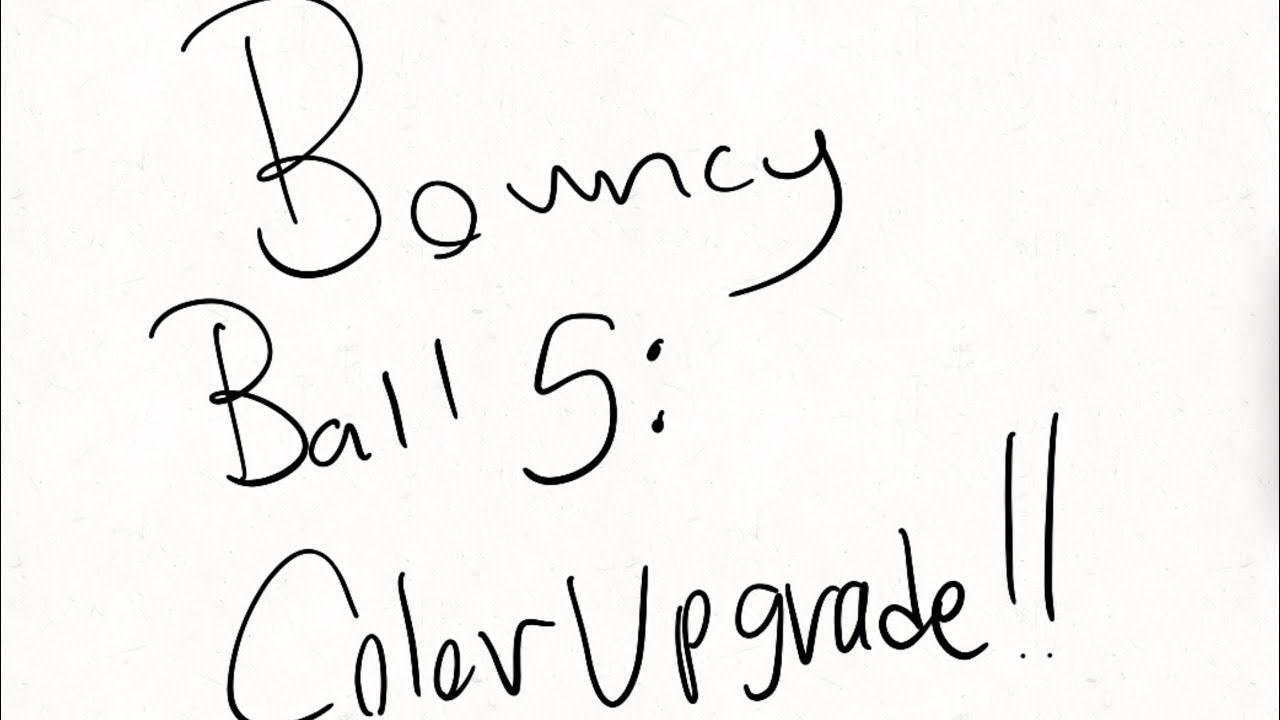 Bouncy
Ball 5:
Color Upgrade!!